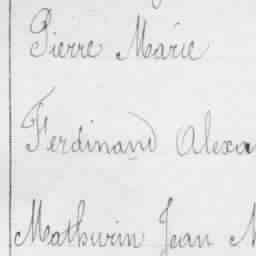 Pierre Marie
Ferdinand Alexa
Mathurin Jean M